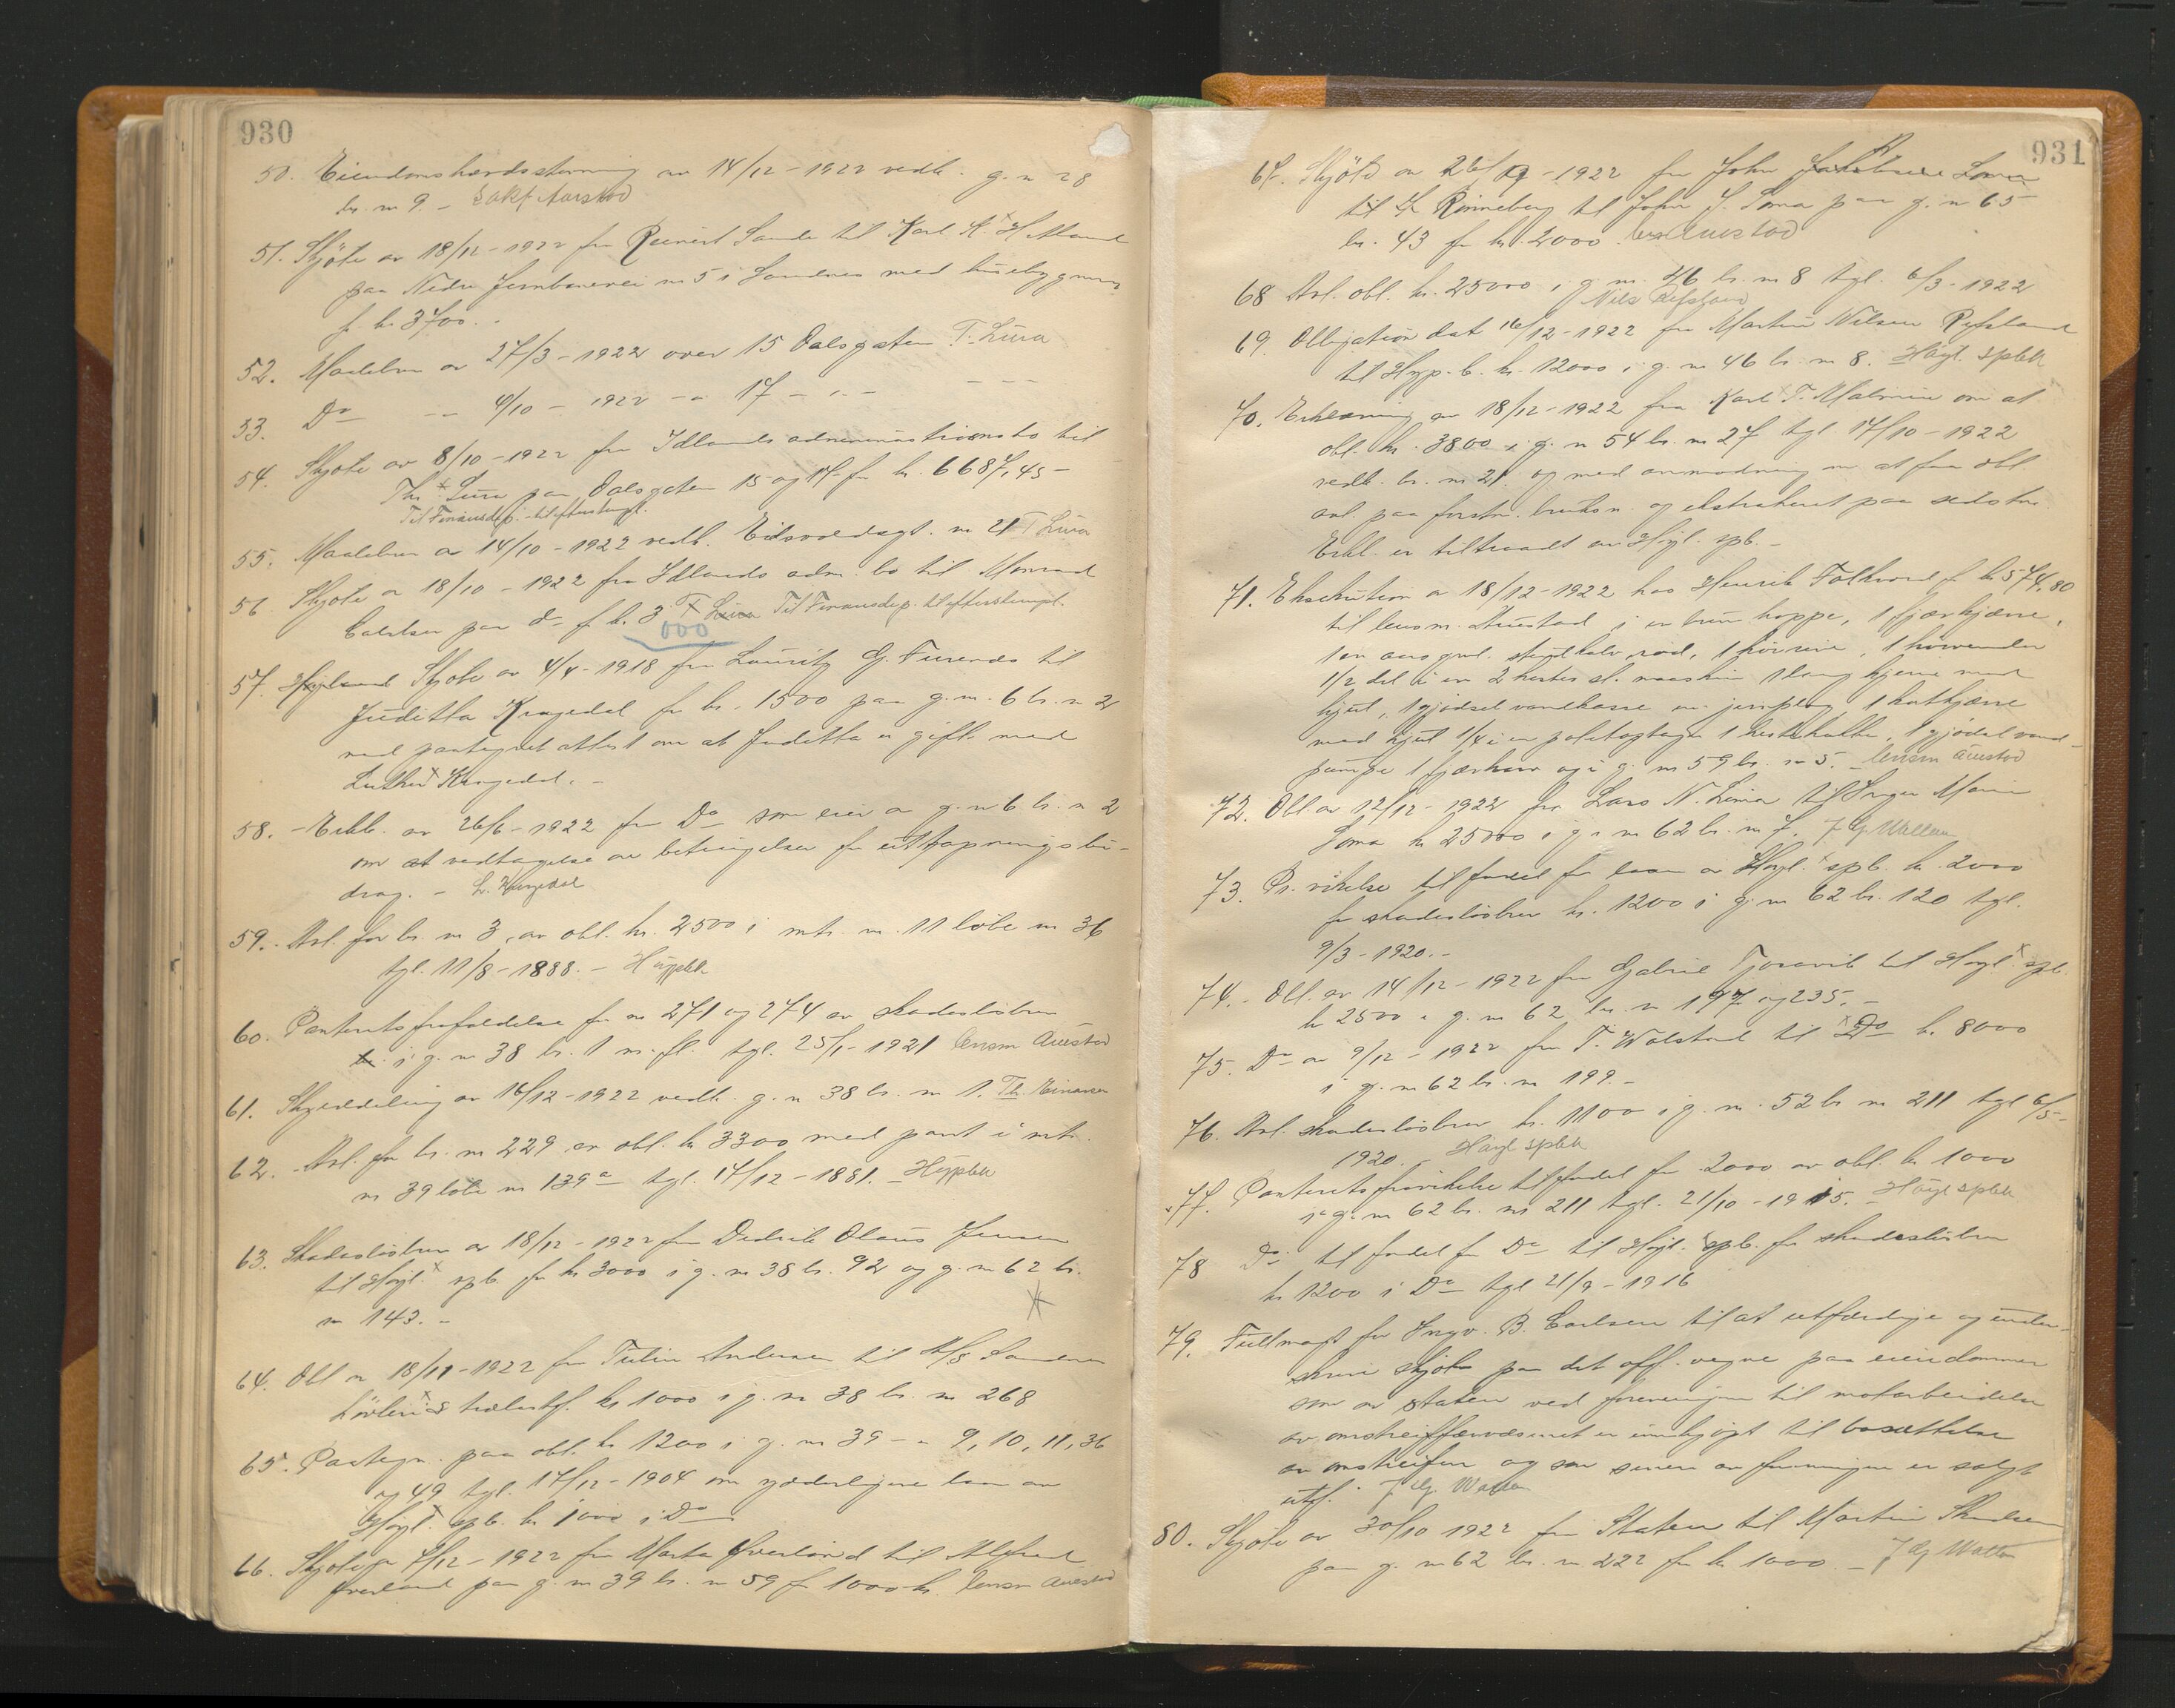 930
50. Eiendomshævdsstevning av 14/12-1922 vedk. g. n 28
br. n 9. - Sakf Aarstad
51. Skjöte av 18/12-1922 fra Reinert Sande til Karl K. Hetland
paa Nedre Jernbanevei nr 5 i Sandnes med husebygning
f. kr 3700. -
52. Maalebrev av 27/3-1922 over 15 Dalsgaten T. Lura
53. Do - - 4/10 - 1922 - " 17 - " -
54. Skjöte av 8/10-1922 fra Idlands administrationsbo til
Th. Lura paa Dalsgaten 15 og 17 for kr. 6687,45 -
Til Finansdep. til efterstempl.
55. Maalebrev av 14/10-1922 vedk. Eidsvoldsgt. nr 21 T Lura
56 Skjöte av 18/10-1922 fra Idlands adm. bo til Monrad
Carlsen paa do f. kr. 3000 T Lura Til Finansdep. til efterstempl.
57. Skjöte av 4/4-1918 fra Lauritz G. Furenes til
Juditta Kragedal for kr. 1500 paa g. nr. 6 br. n 2
med paategnet attest om at Juditta er gift med
Luther Kragedal. -
58. - Erkl. av 26/6-1922 fra Do som eier av g. n 6 br. n 2
om at vedtagelse av betingelser for uttapningsbi-
drag. - L. Kragedal
59. - Avl. for br. nr 3, av obl. kr. 2500 i mtr. nr. 11 löbe nr 36
tgl. 11/8-1888. - Hyppbk
60. Panterets frafaldelse for nr 271 og 274 av skadeslösbrev
i g. nr 38 br. 1 m. fl. tgl. 25/1-1921 lensm Auestad
61. Skylddeling av 16/12-1922 vedk. g. n 38 br. nr 1. Th. Einarsen
62. - Avl. for br. nr 229 av obl. kr 3300 med pant i mtr.
nr 39 löbe nr 139a tgl. 17/12-1881. - Hyppbk
63. Skadeslösbrev av 18/12-1922 fra Dedrik Olaus Jensen
til Høgl. spb. for kr 3000 i g. nr 38 br. 92 og g. n 62 br.
nr 143. -
64. Obl av 18/11-1922 fra Tulius Andersen til A/S Sandnes
kr 1000 i g. nr 38 br. nr 268
65. Paategn. paa obl. kr 1200 i g. nr 39 - " 9, 10, 11, 36
og 49 tgl. 17/12-1904 om yderligere laan av
Høgl. spb. kr 1000 i Do
66. Skjöte av 7/12-1922 fra Marta Överland til Alfred
Överland paa g. n 39 br. nr 59 for 1000 kr. lensm Auestad
931
67. Skjöte av 26/9-1922 fra John Soma
til Rönneberg til John J. Soma paa g. n 65
br. 43 for kr. 2000. lensm Auestad
68 Avl. obl. kr. 25000 i g. nr. 46 br. nr 8 tgl. 6/3-1922
Nils Refsland
69. Obligation dat 16/12-1922 fra Martin Nilsen Refsland
til Hyp. b. kr. 12000 i g. nr 46 br. nr 8. Høgl. Spbk
70. Erklæring av 18/12-1922 fra Karl T. Malmin om at
obl. kr. 3800 i g. n 54 br. nr 27 tgl. 17/10-1922
vedk. br. nr 21. og med anmodning om at faa obl.
anl. paa forstn. bruksn. og ekstrahert paa sidstn.
Erkl. er tiltraadt av Høgl. spb. -
71. Eksekution av 18/12-1922 hos Henrik Folkvord for kr 574,80
til lensm. Auestad i en brun hoppe, 1 fjærkjærre,
1 en aars gml. studkalv, rød, 1 hörive, 1 hövender
1/2 del i en 2 hestes sl. maskin 1 lang kjerre med
hjul, 1 gjødsel vandkasse en jernplog 1 hatkjærre
med hjul 1/4 i en potetoptager 1 hestehakke, 1 gjødsel vand-
pumpe 1 fjærharv og i g. nr 59 br. nr 5. - lensm Auestad
72. Obl. av 12/12-1922 fra Lars N. Lima til Inger Marie
Soma kr 25000 i g. nr 62 br. nr 7. J Gj Watten
73. Pr. vikelse til fordel for laan av Høgl. spb. kr. 2000
for skadeslösbrev kr. 1200 i g. nr 62 br. 120 tgl.
9/3-1920. -
74. - Obl. av 14/12-1922 fra Gabriel Tjosevik til Høgl. spb.
kr 2500 i g. nr 62 br. nr 197 og 235. -
75. Do av 9/12-1922 fra T. Wolstad til Do kr. 8000
i g. nr 62 br. nr 199. -
76. Avl. skadeslösbrev kr. 1100 i g. nr. 52 br nr 211 tgl 6/5-
1920. - Høgl spbk
77. Panterets fravikelse til fordel for 2000 av obl. kr 1000
i g. nr 62 br. nr 211 tgl. 21/10-1915. - Høgl spbk
78 Do til fordel for Do til Høgl. spb. for skadeslösbrev
kr 1200 i Do tgl 21/9-1916
79. Fullmagt for Ingv. B. Carlsen til at utfærdige og under-
skrive skjöte paa det off. vegne paa eiendommer
som av staten ved foreningen til motarbeidelse
av omstreiffervæsenet er innkjøpt til bosættelse
av omstreifere og som senere av foreningen er solgt
utf. J Gj Watten
80. Skjöte av 30/10 1922 fra Staten til Martin Knudsen
paa g. nr 62 br. nr 222 for kr 1000. - J Gj Watten